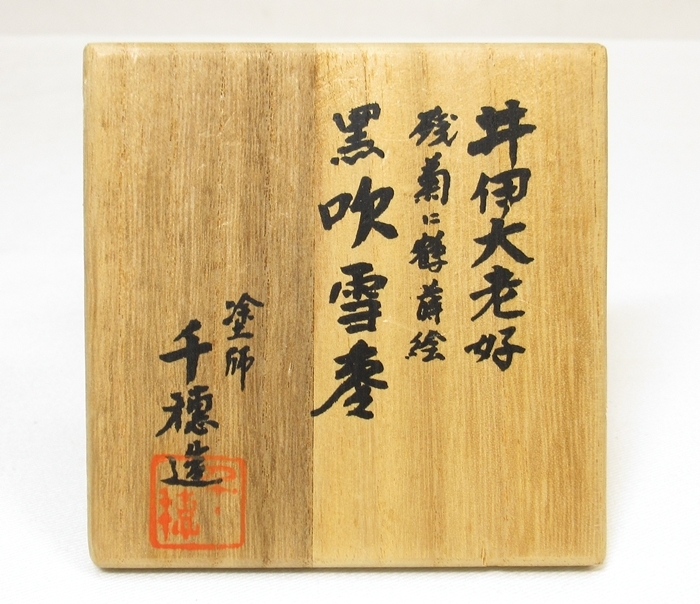 井伊大老好
残菊に鶴蒔絵
黒吹雪棗
塗師
千穂造